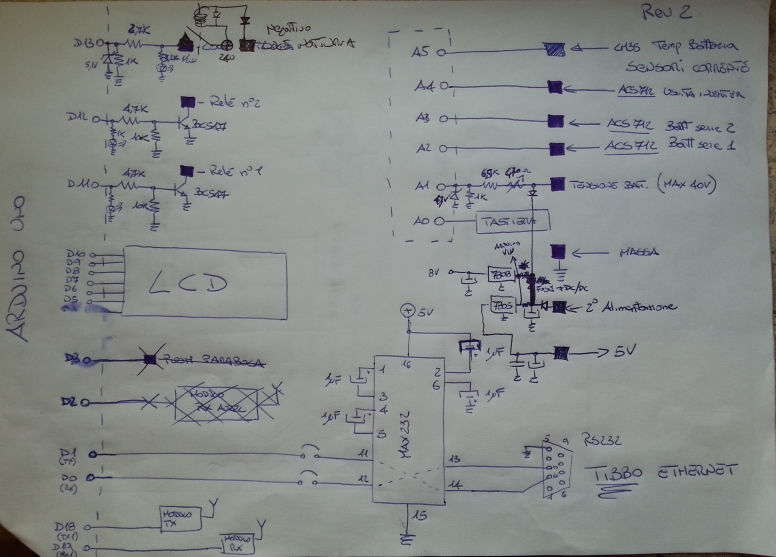 Rev 2
Negativo
D13
4,7K
5,1V
1K
D12
4,7K
Relé n°2
BC547
1K
10K
D11
4,7K
Relé n°1
BC547
10K
ARDUINO UNO
D10
D9
D8
D7
D6
D5
LCD
D3
D2
MODULO
D1
(TX)
D0
(RX)
D18
(TX1)
MODULO
TX
D19
MODULO
RX
A5
LM35 Temp Batteria
SENSORI CORRENTE
A4
ACS712 USCITA INVERTER
A3
ACS712 Batt serie 2
A2
ACS712 Batt serie 1
A1
470Ω
1K
TENSIONE BAT. (MAX 40V)
A0
TASTIERA
ARDUINO
VIN
MASSA
8V
7808
7805
2° Alimentazione
5V
5V
MAX232
16
1
3
4
5
11
12
2
6
13
14
15
1µF
1µF
1µF
1µF
RS232
TIBBO ETHERNET